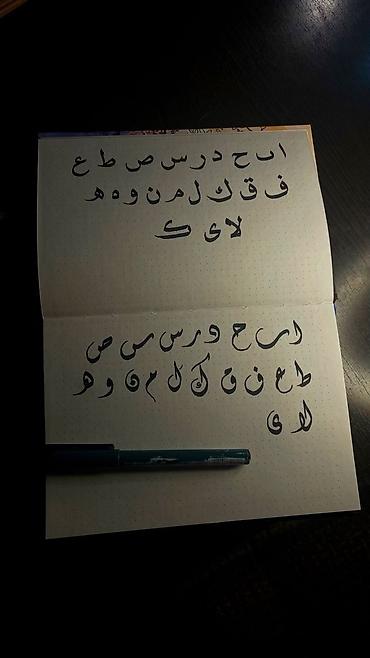 ا ب ح د ر س ص ط ع
ف ق ك ل م ن و ه ھ
لا ى ک
ا ب ح د ر س س ص
ط ع ف ق ك ل م ن و ھ
لا ى